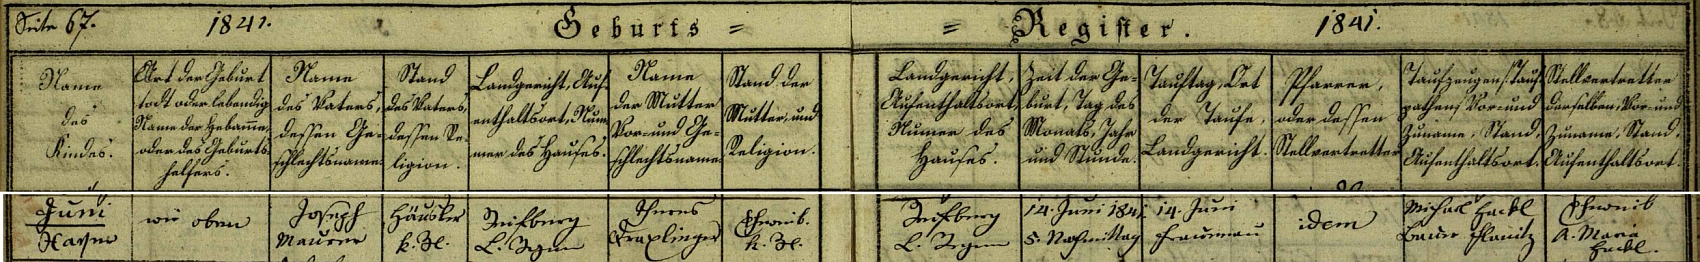 Seite 67.
1841.
Geburts =
= Register.
1841.
Name
des
Kindes.
Art der Geburt
todt oder lebendig
Name der Hebamme,
oder des Geburts-
helfers.
Name
des Vaters,
dessen Ge-
schlechtsname.
Stand
des Vaters,
dessen Re-
ligion.
Landgericht, Auf-
enthaltsort, Num-
mer des Hauses.
Name
der Mutter
Vor- und Ge-
schlechtsname.
Stand der
Mutter, und
Religion.
Landgericht,
Aufenthaltsort,
Numer des
Hauses.
Zeit der Ge-
burt, Tag des
Monats, Jahr
und Stunde.
Tauftag, Ort
der Taufe,
Landgericht.
Pfarrer,
oder dessen
Stellvertretter
Taufzeugen/Tauf-
pathen, Vor- und
Zuname, Stand,
Aufenthaltsort.
Stellvertretter
derselben, Vor- und
Zuname, Stand,
Aufenthaltsort.
Juni
wie oben
Joseph
Maurer
Häusler
k. Rl.
L. Regen
Theres
Cheweib.
k. Rl.
L. Regen
14. Juni 1841
5. Nachmittag
14. Juni
Frauenau
idem
Michael Hackl
Bauer
Eheweib
A. Maria
Hackl.